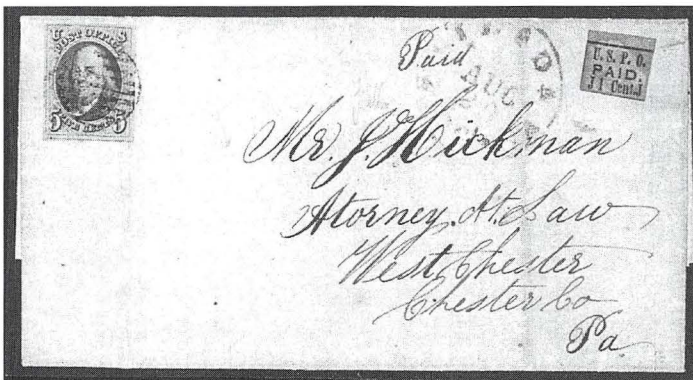 U S
POST OFFICE
5 FIVE CENTS 5
Paid
AUG
U.S.P.O.
PAID.
[1 Cent.]
Mr. J. Hickman
Atorney At Law
West Chester
Chester Co
Pa